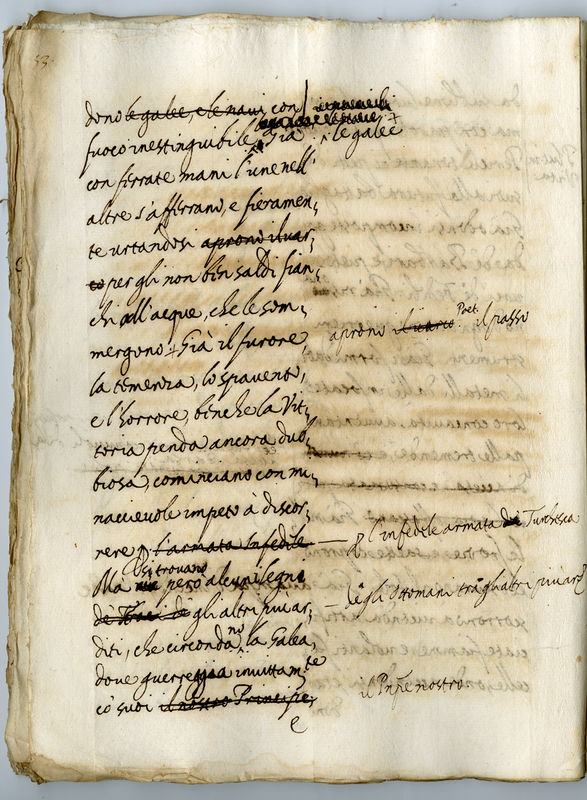 53.
dono le galee, e le navi con
fuoco inestinguibile. Già + le galee
con ferrate mani l'une nell'
altre s'afferrano, e fieramen,
te urtandosi aprono il uar,
co per gli non ben saldi fian,
chi all'acque, che le som,
aprono il uarco Poet. il passo
mergono. Già il furore,
la temenza, lo spavento,
e l'horrore, benche la Vit,
toria penda ancora dub,
biosa, cominciano con mi,
naccievole impeto à discor,
rere p l'armata Infedele — p l'infedele armata Turchesca
Ma si trovano però alcuni legni
de' Traci de gli altri più ar, — degli Ottomani trà gli altri più ar
diti, che circondano la Galea,
dove guerreggia invittamte
co' suoi il nostro Principe, il Pnpe nostro
e